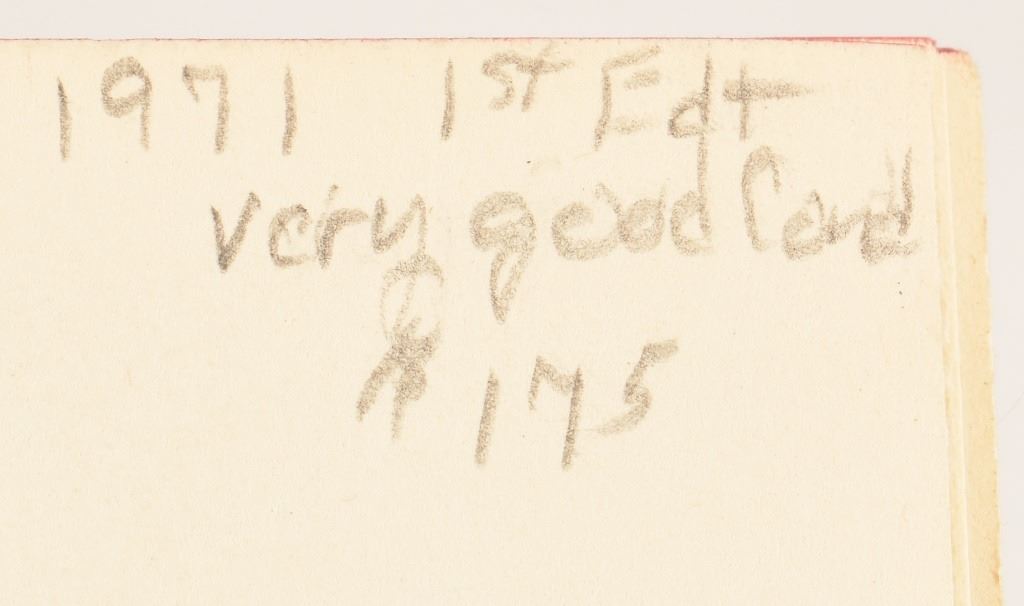 1971 1st Edt
very good Cond
$175